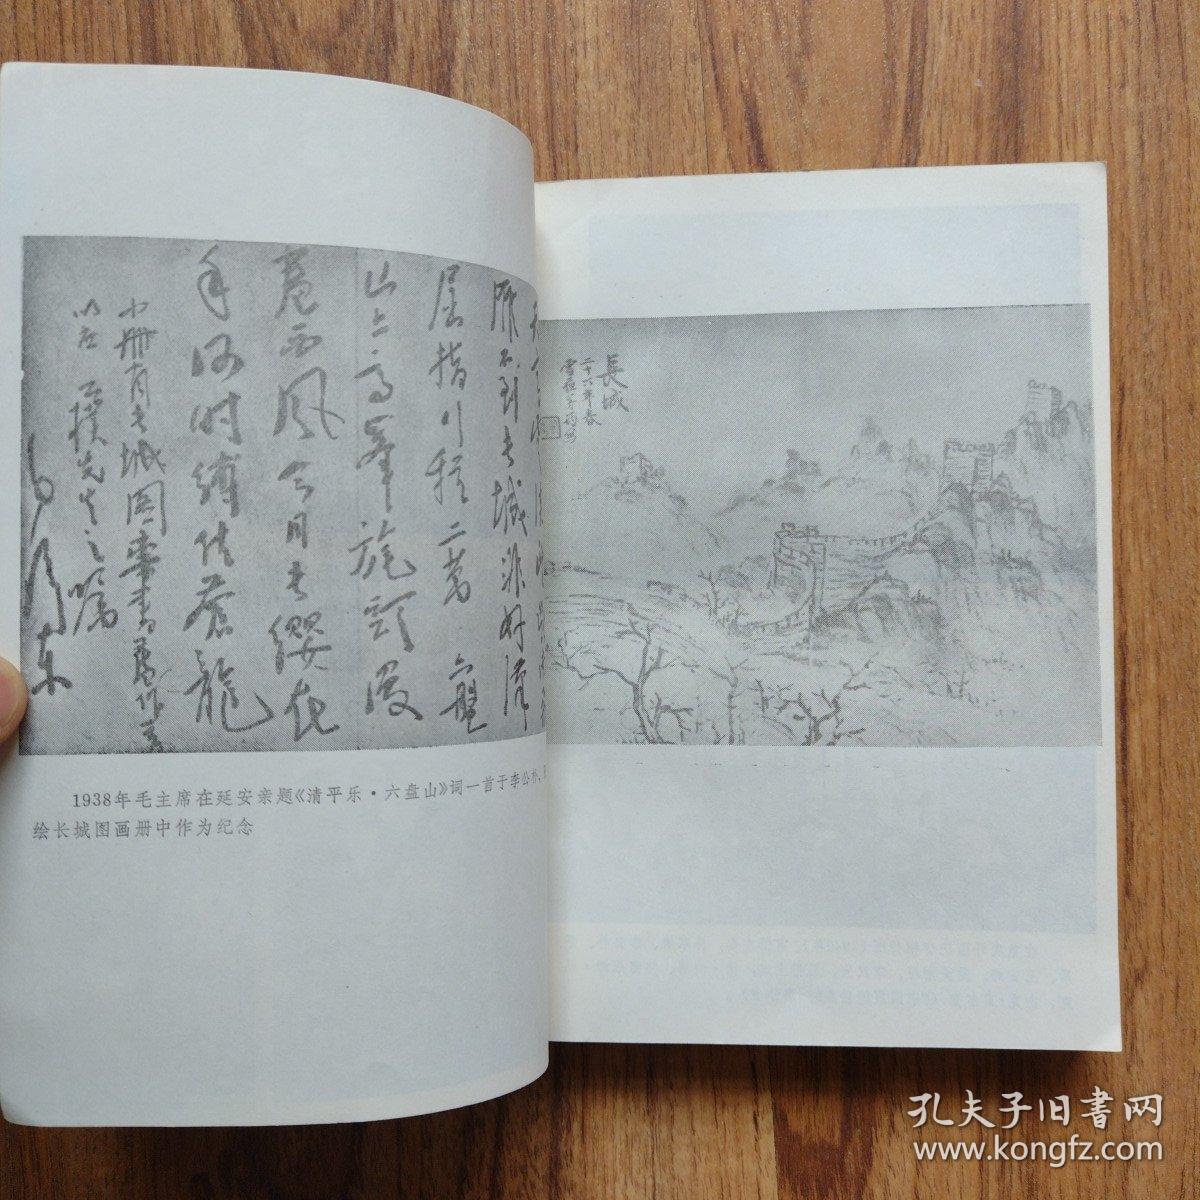 雁不到长城非好漢
屈指行程二萬 六盤
山上高峯旄頭漫
卷西風今日长缨在
手何时缚住苍龍
小册有长城图
以应 公朴先生之嘱
毛泽东
1938年毛主席在延安亲题《清平乐·六盘山》词一首于李公朴、
绘长城图画册中作为纪念
長城
二十六年春
孔夫子旧書网
www.kongfz.com